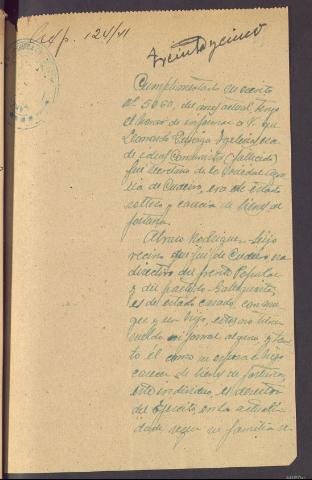 Exp. 124/41
Treinta y cinco
Cumplimentado su escrito
nº 5660, del mes actual tengo
el honor de informar a V. que
Leonardo
de ideas Comunista (fallecido)
fue secretario de la Sociedad
de Cudeiro, era de estado
soltero y carecia de bienes de
fortuna.
Alvaro Rodriguez
vecino de Cudeiro era
directivo del frente Popular
y del partido Galleguista
es del estado casado con mu
ger y un hijo, este
sueldo ni jornal alguno y tan
to él como su esposa e hijo
carecen de bienes de fortuna,
este individuo, es desertor
del Ejercito, en la actuali
dad segun su familia se